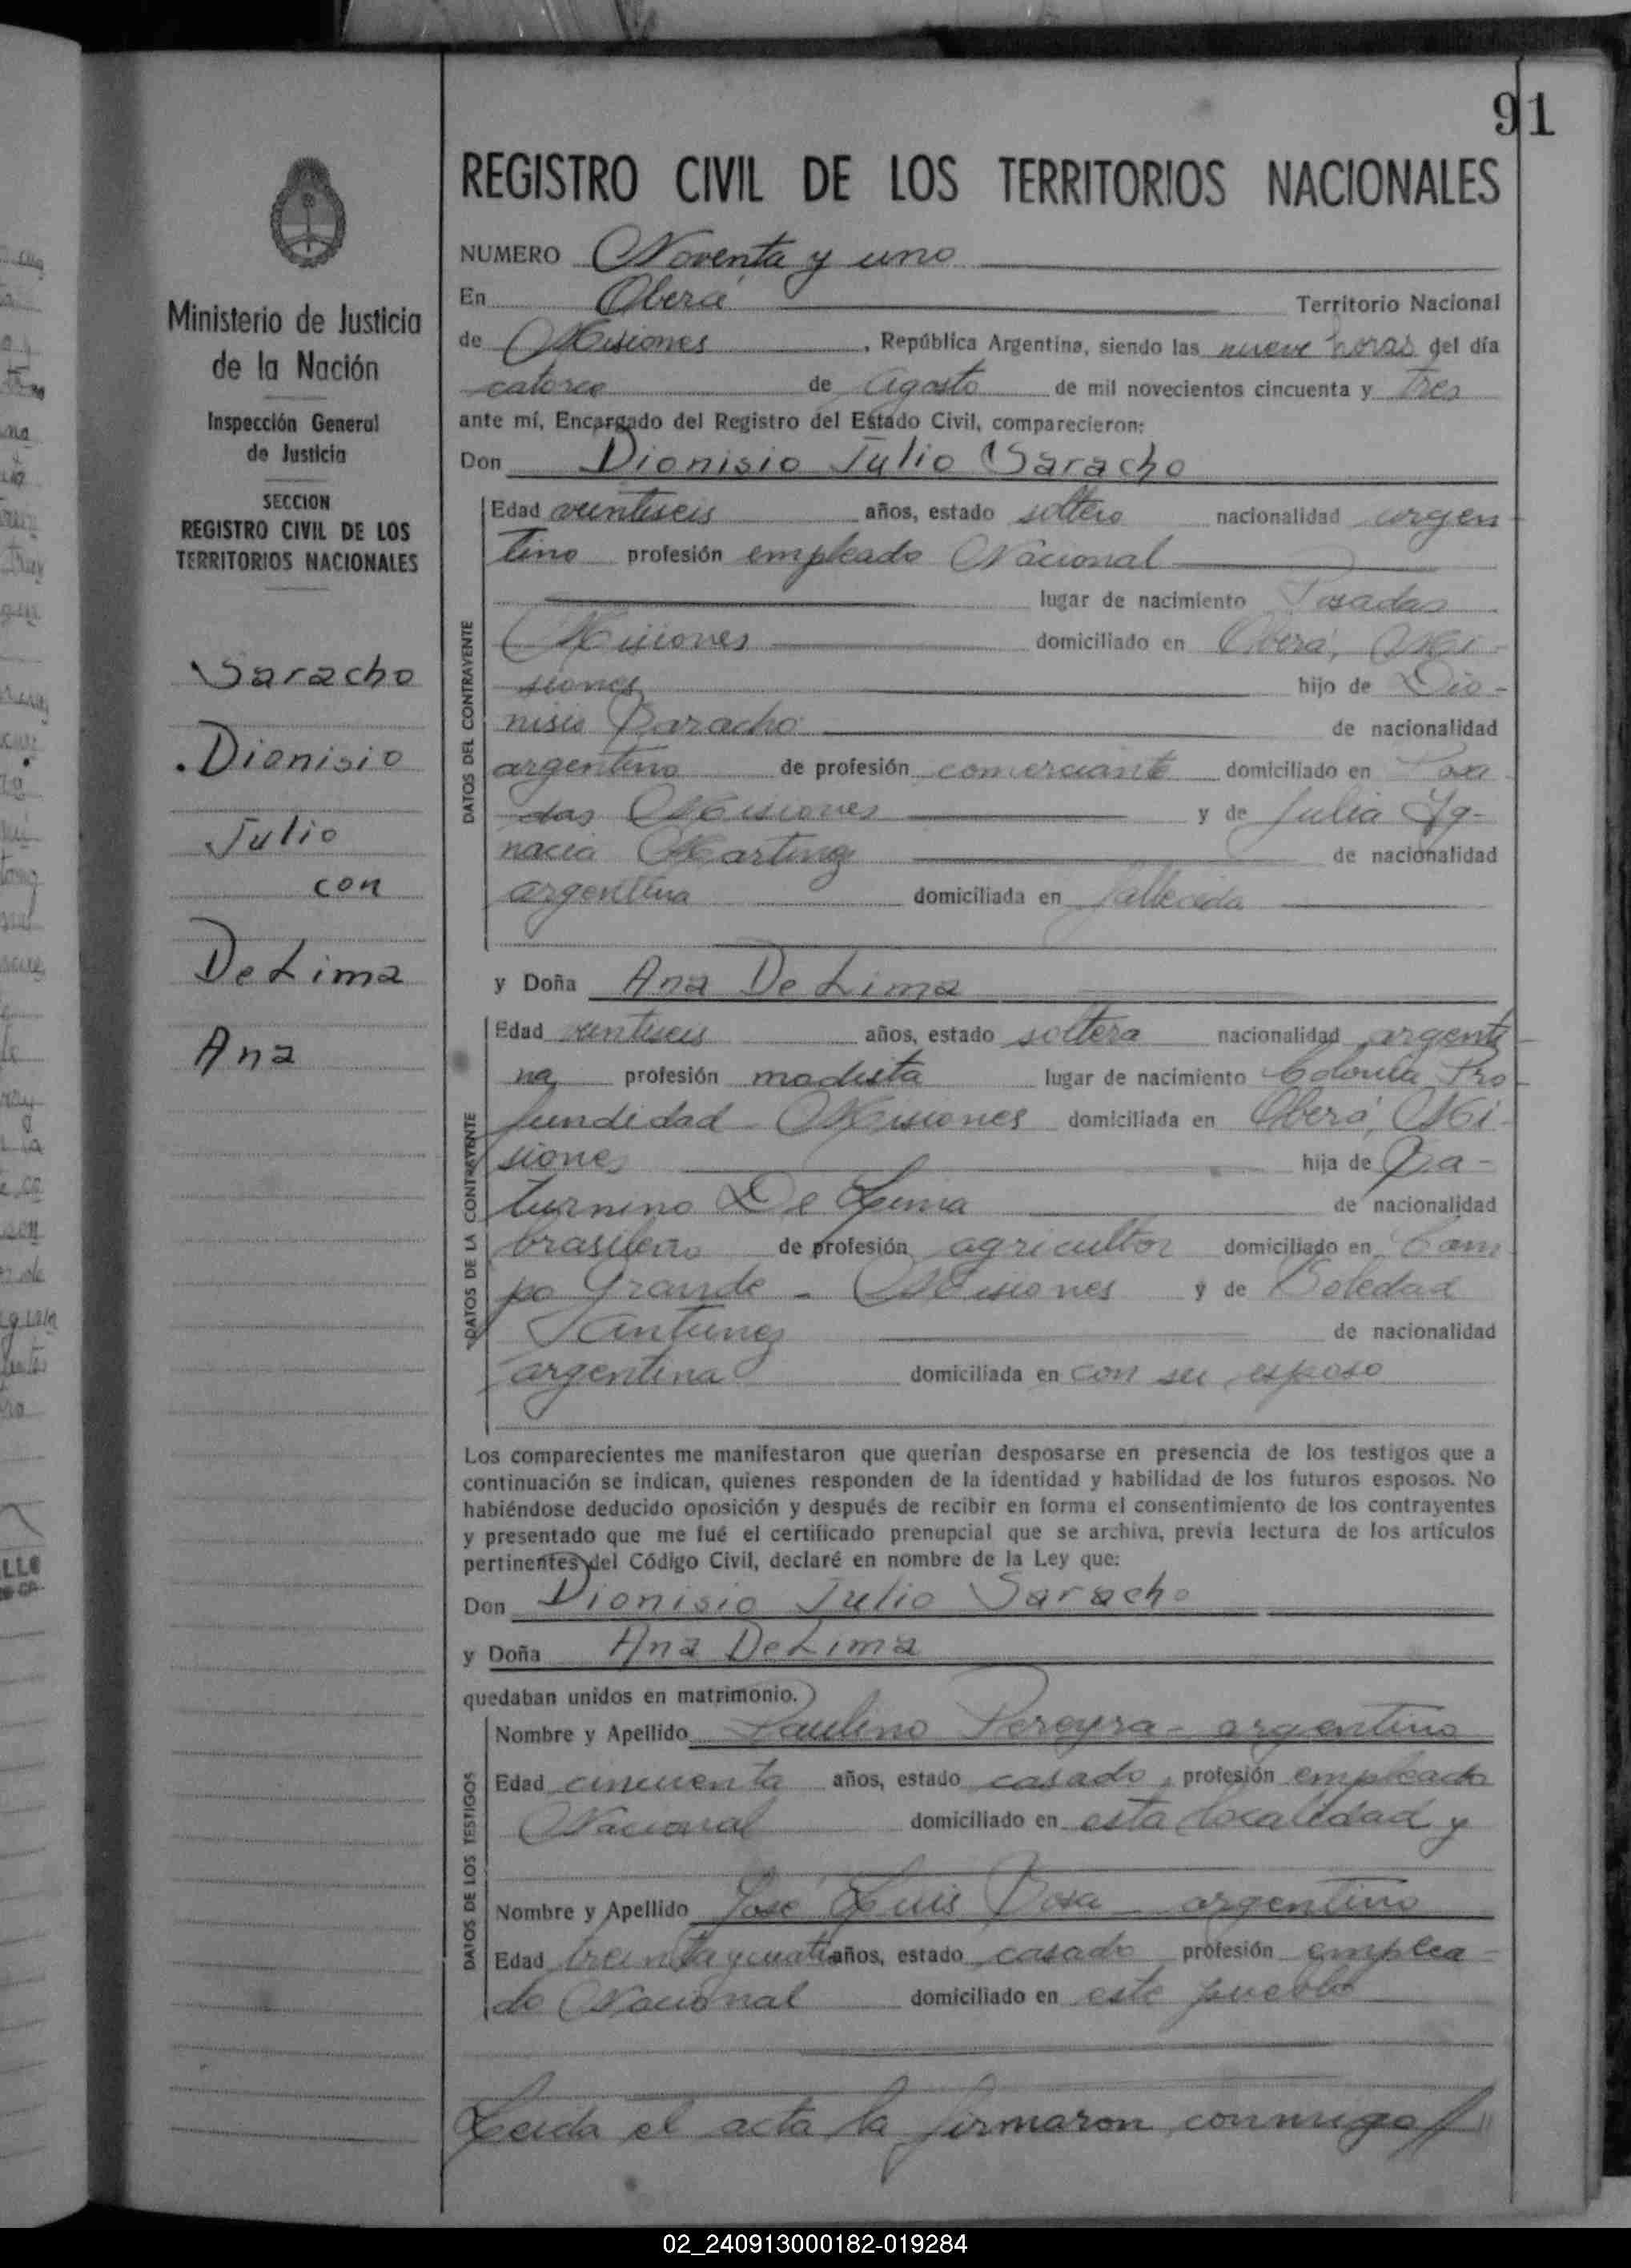 91
Ministerio de Justicia
de la Nación
Inspección General
de Justicia
SECCION
REGISTRO CIVIL DE LOS
TERRITORIOS NACIONALES
Saracho
Dionisio
Julio
con
De Lima
Ana
REGISTRO CIVIL DE LOS TERRITORIOS NACIONALES
NUMERO Noventa y uno
En Oberá Territorio Nacional
de Misiones, República Argentina, siendo las nueve horas del día
catorce de Agosto de mil novecientos cincuenta y Tres
ante mí, Encargado del Registro del Estado Civil, comparecieron:
Don Dionisio Julio Saracho
DATOS DEL CONTRAYENTE
Edad veintiseis años, estado soltero nacionalidad argen
tino profesión empleado Nacional
lugar de nacimiento Posadas
Misiones domiciliado en Oberá, Mi-
siones hijo de Dio-
nisio Saracho de nacionalidad
argentino de profesión comerciante domiciliado en Posa
das Misiones y de Julia Ig-
nacia Martinez de nacionalidad
argentina domiciliada en fallecida
y Doña Ana De Lima
DATOS DE LA CONTRAYENTE
Edad veintiseis años, estado soltera nacionalidad argenti-
na profesión modista lugar de nacimiento Colonia Pro-
fundidad - Misiones domiciliada en Oberá, Mi-
siones hija de Sa-
turnino De Lima de nacionalidad
brasileño de profesión agricultor domiciliado en Cam
po Grande - Misiones y de Soledad
Antunez de nacionalidad
argentina domiciliada en con su esposo
Los comparecientes me manifestaron que querían desposarse en presencia de los testigos que a
continuación se indican, quienes responden de la identidad y habilidad de los futuros esposos. No
habiéndose deducido oposición y después de recibir en forma el consentimiento de los contrayentes
y presentado que me fué el certificado prenupcial que se archiva, previa lectura de los artículos
pertinentes del Código Civil, declaré en nombre de la Ley que:
Don Dionisio Julio Saracho
y Doña Ana De Lima
quedaban unidos en matrimonio.
DATOS DE LOS TESTIGOS
Nombre y Apellido Paulino Pereyra - argentino
Edad cincuenta años, estado casado, profesión empleado
Nacional domiciliado en esta localidad y
Nombre y Apellido José Luis Sosa argentino
Edad treinta y cuatro años, estado casado profesión emplea-
do Nacional domiciliado en este pueblo
Leida el acta la firmaron conmigo
02_240913000182-019284